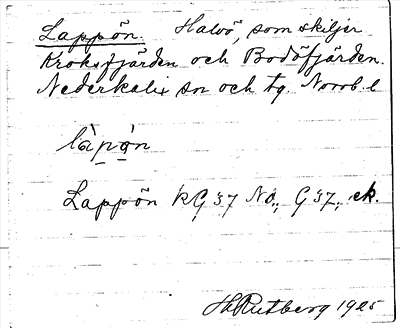 Lappön. Halvö, som skiljer
Kroksfjärden och Bodöfjärden.
Nederkalix sn och tg. Norrb. l
làpọn
Lappön KG 37 NO., G 37., ek.
H. Rutberg 1925